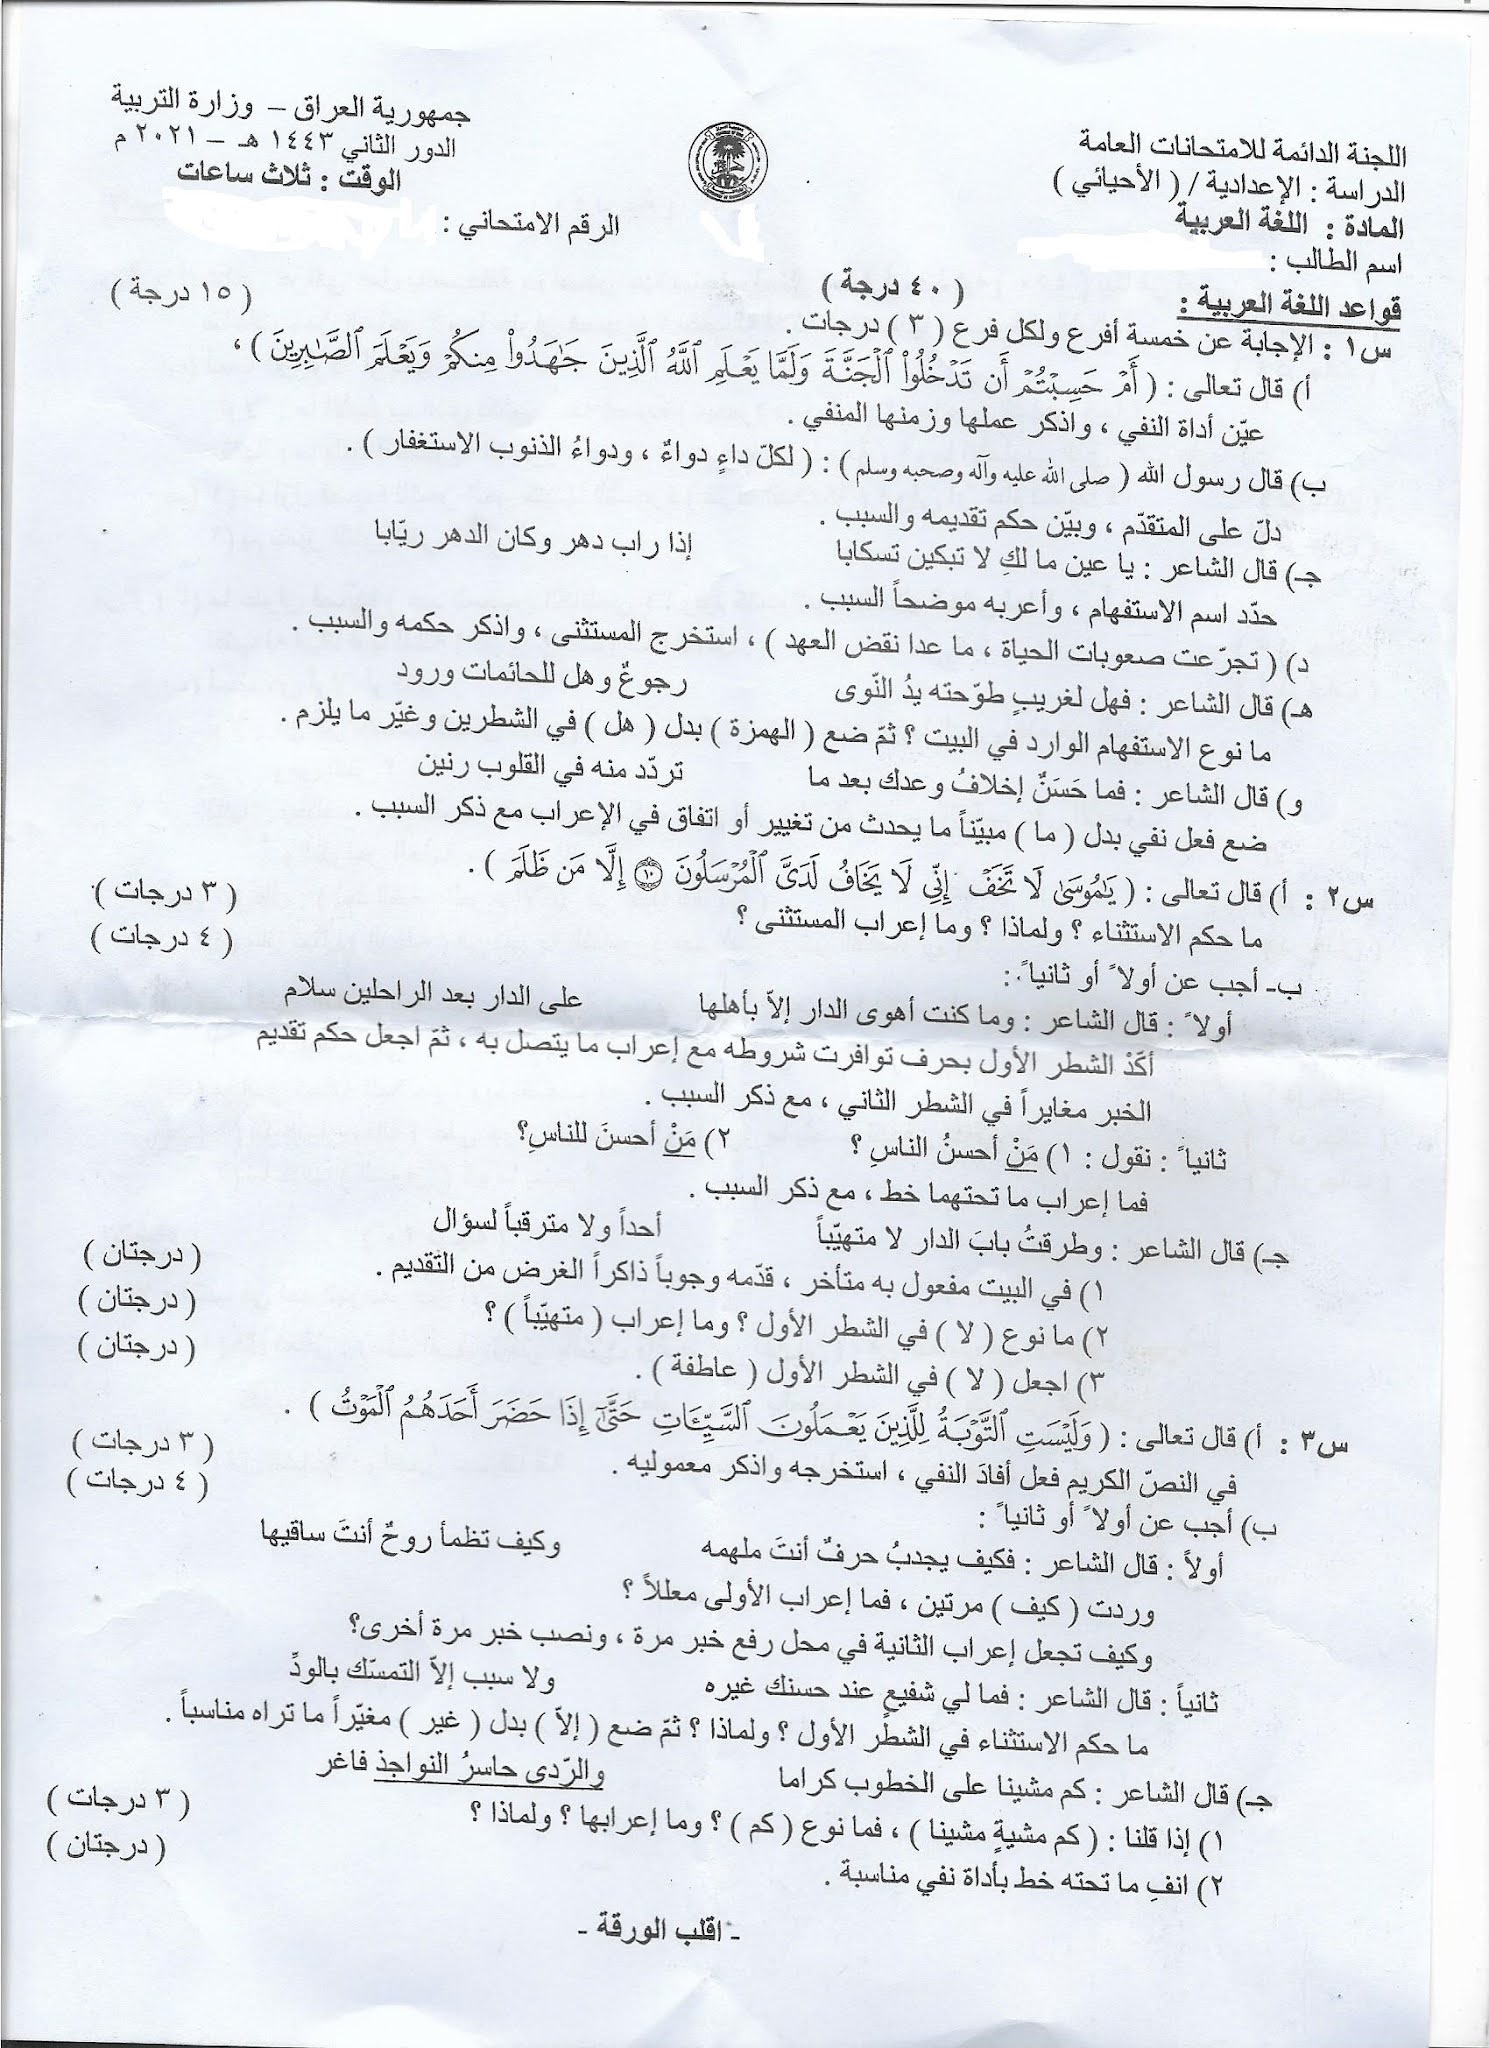 جمهورية العراق – وزارة التربية
الدور الثاني ١٤٤٣ هـ – ٢٠٢١ م
الوقت : ثلاث ساعات
اللجنة الدائمة للامتحانات العامة
الدراسة : الإعدادية / ( الأحيائي )
المادة : اللغة العربية
الرقم الامتحاني :
اسم الطالب :
قواعد اللغة العربية : ( ٤٠ درجة )
س١ : الإجابة عن خمسة أفرع ولكل فرع ( ٣ ) درجات . ( ١٥ درجة )
أ) قال تعالى : ( أَمْ حَسِبْتُمْ أَن تَدْخُلُوا۟ ٱلْجَنَّةَ وَلَمَّا يَعْلَمِ ٱللَّهُ ٱلَّذِينَ جَـٰهَدُوا۟ مِنكُمْ وَيَعْلَمَ ٱلصَّـٰبِرِينَ ) ،
عيّن أداة النفي ، واذكر عملها وزمنها المنفي .
ب) قال رسول الله ( صلى الله عليه وآله وصحبه وسلم ) : ( لكلّ داءٍ دواءٌ ، ودواءُ الذنوب الاستغفار ) .
دلّ على المتقدّم ، وبيّن حكم تقديمه والسبب .
جـ) قال الشاعر : يا عين ما لكِ لا تبكين تسكابا إذا راب دهر وكان الدهر ريّابا
حدّد اسم الاستفهام ، وأعربه موضحاً السبب .
د) ( تجرّعت صعوبات الحياة ، ما عدا نقض العهد ) ، استخرج المستثنى ، واذكر حكمه والسبب .
هـ) قال الشاعر : فهل لغريبٍ طوّحته يدُ النّوى رجوعٌ وهل للحائمات ورود
ما نوع الاستفهام الوارد في البيت ؟ ثمّ ضع ( الهمزة ) بدل ( هل ) في الشطرين وغيّر ما يلزم .
و) قال الشاعر : فما حَسَنٌ إخلافُ وعدك بعد ما تردّد منه في القلوب رنين
ضع فعل نفي بدل ( ما ) مبيّناً ما يحدث من تغيير أو اتفاق في الإعراب مع ذكر السبب .
س٢ : أ) قال تعالى : ( يَـٰمُوسَىٰ لَا تَخَفْ إِنِّى لَا يَخَافُ لَدَىَّ ٱلْمُرْسَلُونَ ١٠ إِلَّا مَن ظَلَمَ ) . ( ٣ درجات )
ما حكم الاستثناء ؟ ولماذا ؟ وما إعراب المستثنى ؟
ب- أجب عن أولاً أو ثانياً : ( ٤ درجات )
أولاً : قال الشاعر : وما كنت أهوى الدار إلاّ بأهلها على الدار بعد الراحلين سلام
أكّدْ الشطر الأول بحرف توافرت شروطه مع إعراب ما يتصل به ، ثمّ اجعل حكم تقديم
الخبر مغايراً في الشطر الثاني ، مع ذكر السبب .
ثانياً : نقول : ١) مَنْ أحسنُ الناسِ ؟ ٢) مَنْ أحسنَ للناسِ؟
فما إعراب ما تحتهما خط ، مع ذكر السبب .
جـ) قال الشاعر : وطرقتُ بابَ الدار لا متهيّباً أحداً ولا مترقباً لسؤال
١) في البيت مفعول به متأخر ، قدّمه وجوباً ذاكراً الغرض من التقديم . ( درجتان )
٢) ما نوع ( لا ) في الشطر الأول ؟ وما إعراب ( متهيّباً ) ؟ ( درجتان )
٣) اجعل ( لا ) في الشطر الأول ( عاطفة ) . ( درجتان )
س٣ : أ) قال تعالى : ( وَلَيْسَتِ ٱلتَّوْبَةُ لِلَّذِينَ يَعْمَلُونَ ٱلسَّيِّـَٔاتِ حَتَّىٰٓ إِذَا حَضَرَ أَحَدَهُمُ ٱلْمَوْتُ ) . ( ٣ درجات )
في النصّ الكريم فعل أفادَ النفي ، استخرجه واذكر معموليه .
ب) أجب عن أولاً أو ثانياً : ( ٤ درجات )
أولاً : قال الشاعر : فكيف يجدبُ حرفٌ أنتَ ملهمه وكيف تظمأ روحٌ أنتَ ساقيها
وردت ( كيف ) مرتين ، فما إعراب الأولى معللاً ؟
وكيف تجعل إعراب الثانية في محل رفع خبر مرة ، ونصب خبر مرة أخرى؟
ثانياً : قال الشاعر : فما لي شفيعٍ عند حسنك غيره ولا سبب إلاّ التمسّك بالودِّ
ما حكم الاستثناء في الشطر الأول ؟ ولماذا ؟ ثمّ ضع ( إلاّ ) بدل ( غير ) مغيّراً ما تراه مناسباً .
جـ) قال الشاعر : كم مشينا على الخطوب كراما والرّدى حاسرُ النواجذ فاغر
١) إذا قلنا : ( كم مشيةٍ مشينا ) ، فما نوع ( كم ) ؟ وما إعرابها ؟ ولماذا ؟ ( ٣ درجات )
٢) انفِ ما تحته خط بأداة نفي مناسبة . ( درجتان )
- اقلب الورقة -